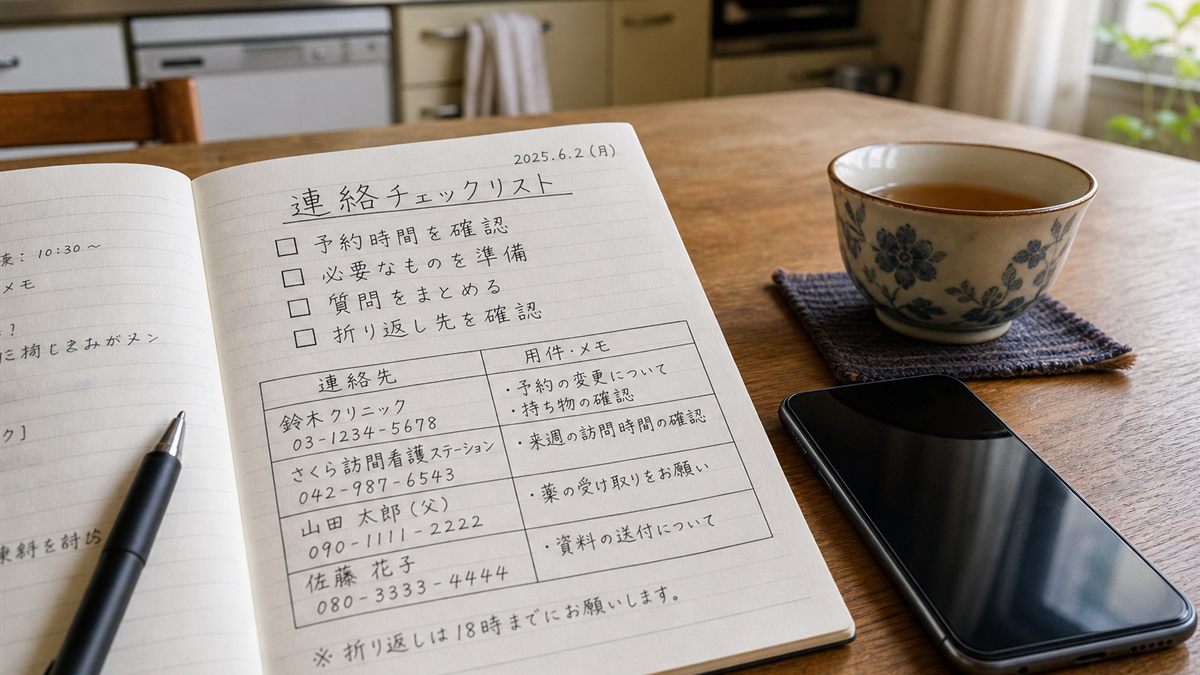 10:30～
メモ
2025.6.2(月)
連絡チェックリスト
□ 予約時間を確認
□ 必要なものを準備
□ 質問をまとめる
□ 折り返し先を確認
連絡先
用件・メモ
鈴木クリニック
03-1234-5678
・予約の変更について
・持ち物の確認
さくら訪問看護ステーション
042-987-6543
・来週の訪問時間の確認
山田 太郎(父)
090-1111-2222
・薬の受け取りをお願い
佐藤 花子
080-3333-4444
・資料の送付について
※ 折り返しは18時までにお願いします。